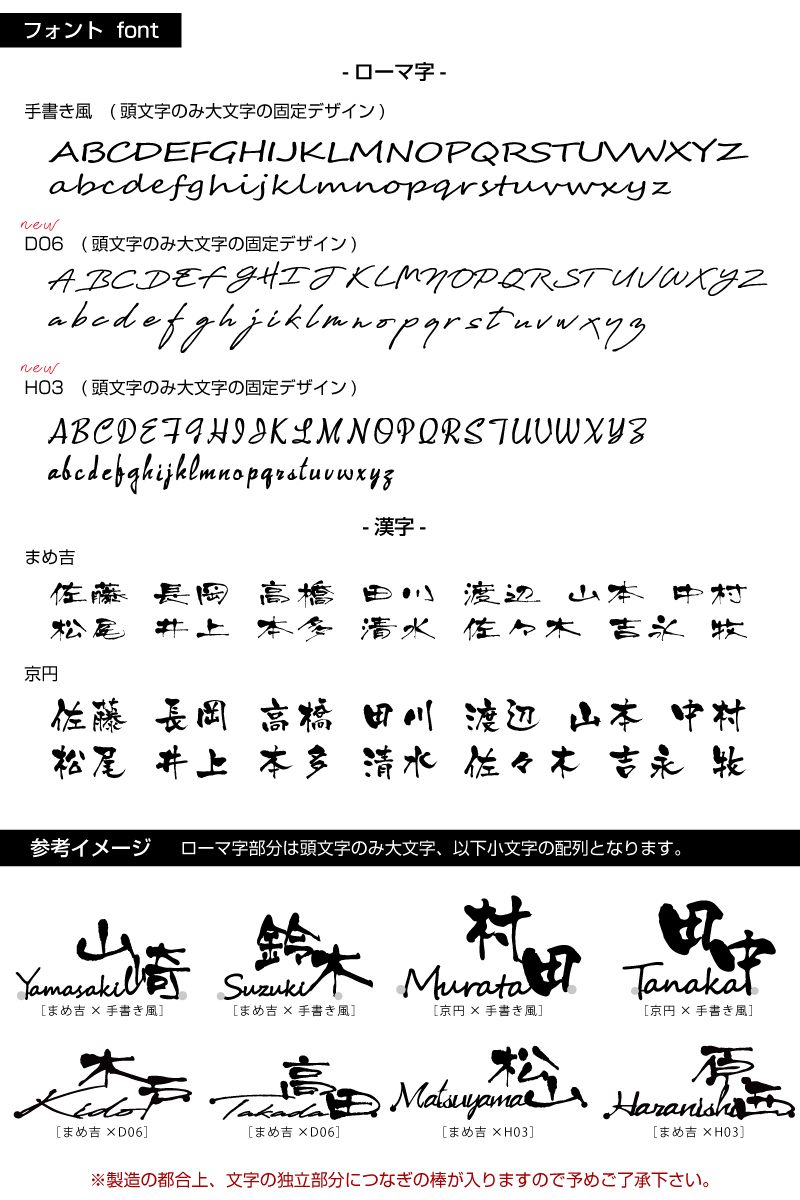 フォント font
- ローマ字 -
手書き風 (頭文字のみ大文字の固定デザイン)
ABCDEFGHIJKLMNOPQRSTUVWXYZ
abcdefghijklmnopqrstuvwxyz
new
D06 (頭文字のみ大文字の固定デザイン)
ABCDEFGHIJKLMNOPQRSTUVWXYZ
abcdefghjiklmnopqrstuvwxyz
new
H03 (頭文字のみ大文字の固定デザイン)
ABCDEFGHIJKLMNOPQRSTUVWXYZ
abcdefghijklmnopqrstuvwxyz
- 漢字 -
まめ吉
佐藤 長岡 高橋 田川 渡辺 山本 中村
松尾 井上 本多 清水 佐々木 吉永 牧
京円
佐藤 長岡 高橋 田川 渡辺 山本 中村
松尾 井上 本多 清水 佐々木 吉永 牧
参考イメージ ローマ字部分は頭文字のみ大文字、以下小文字の配列となります。
山崎 鈴木 村田 田中
Yamasaki Suzuki Murata Tanaka
[まめ吉 × 手書き風] [まめ吉 × 手書き風] [京円 × 手書き風] [京円 × 手書き風]
木戸 高田 松山 原西
Kido Takada Matsuyama Haranishi
[まめ吉 ×D06] [まめ吉 ×D06] [まめ吉 ×H03] [まめ吉 ×H03]
※製造の都合上、文字の独立部分につなぎの棒が入りますので予めご了承下さい。